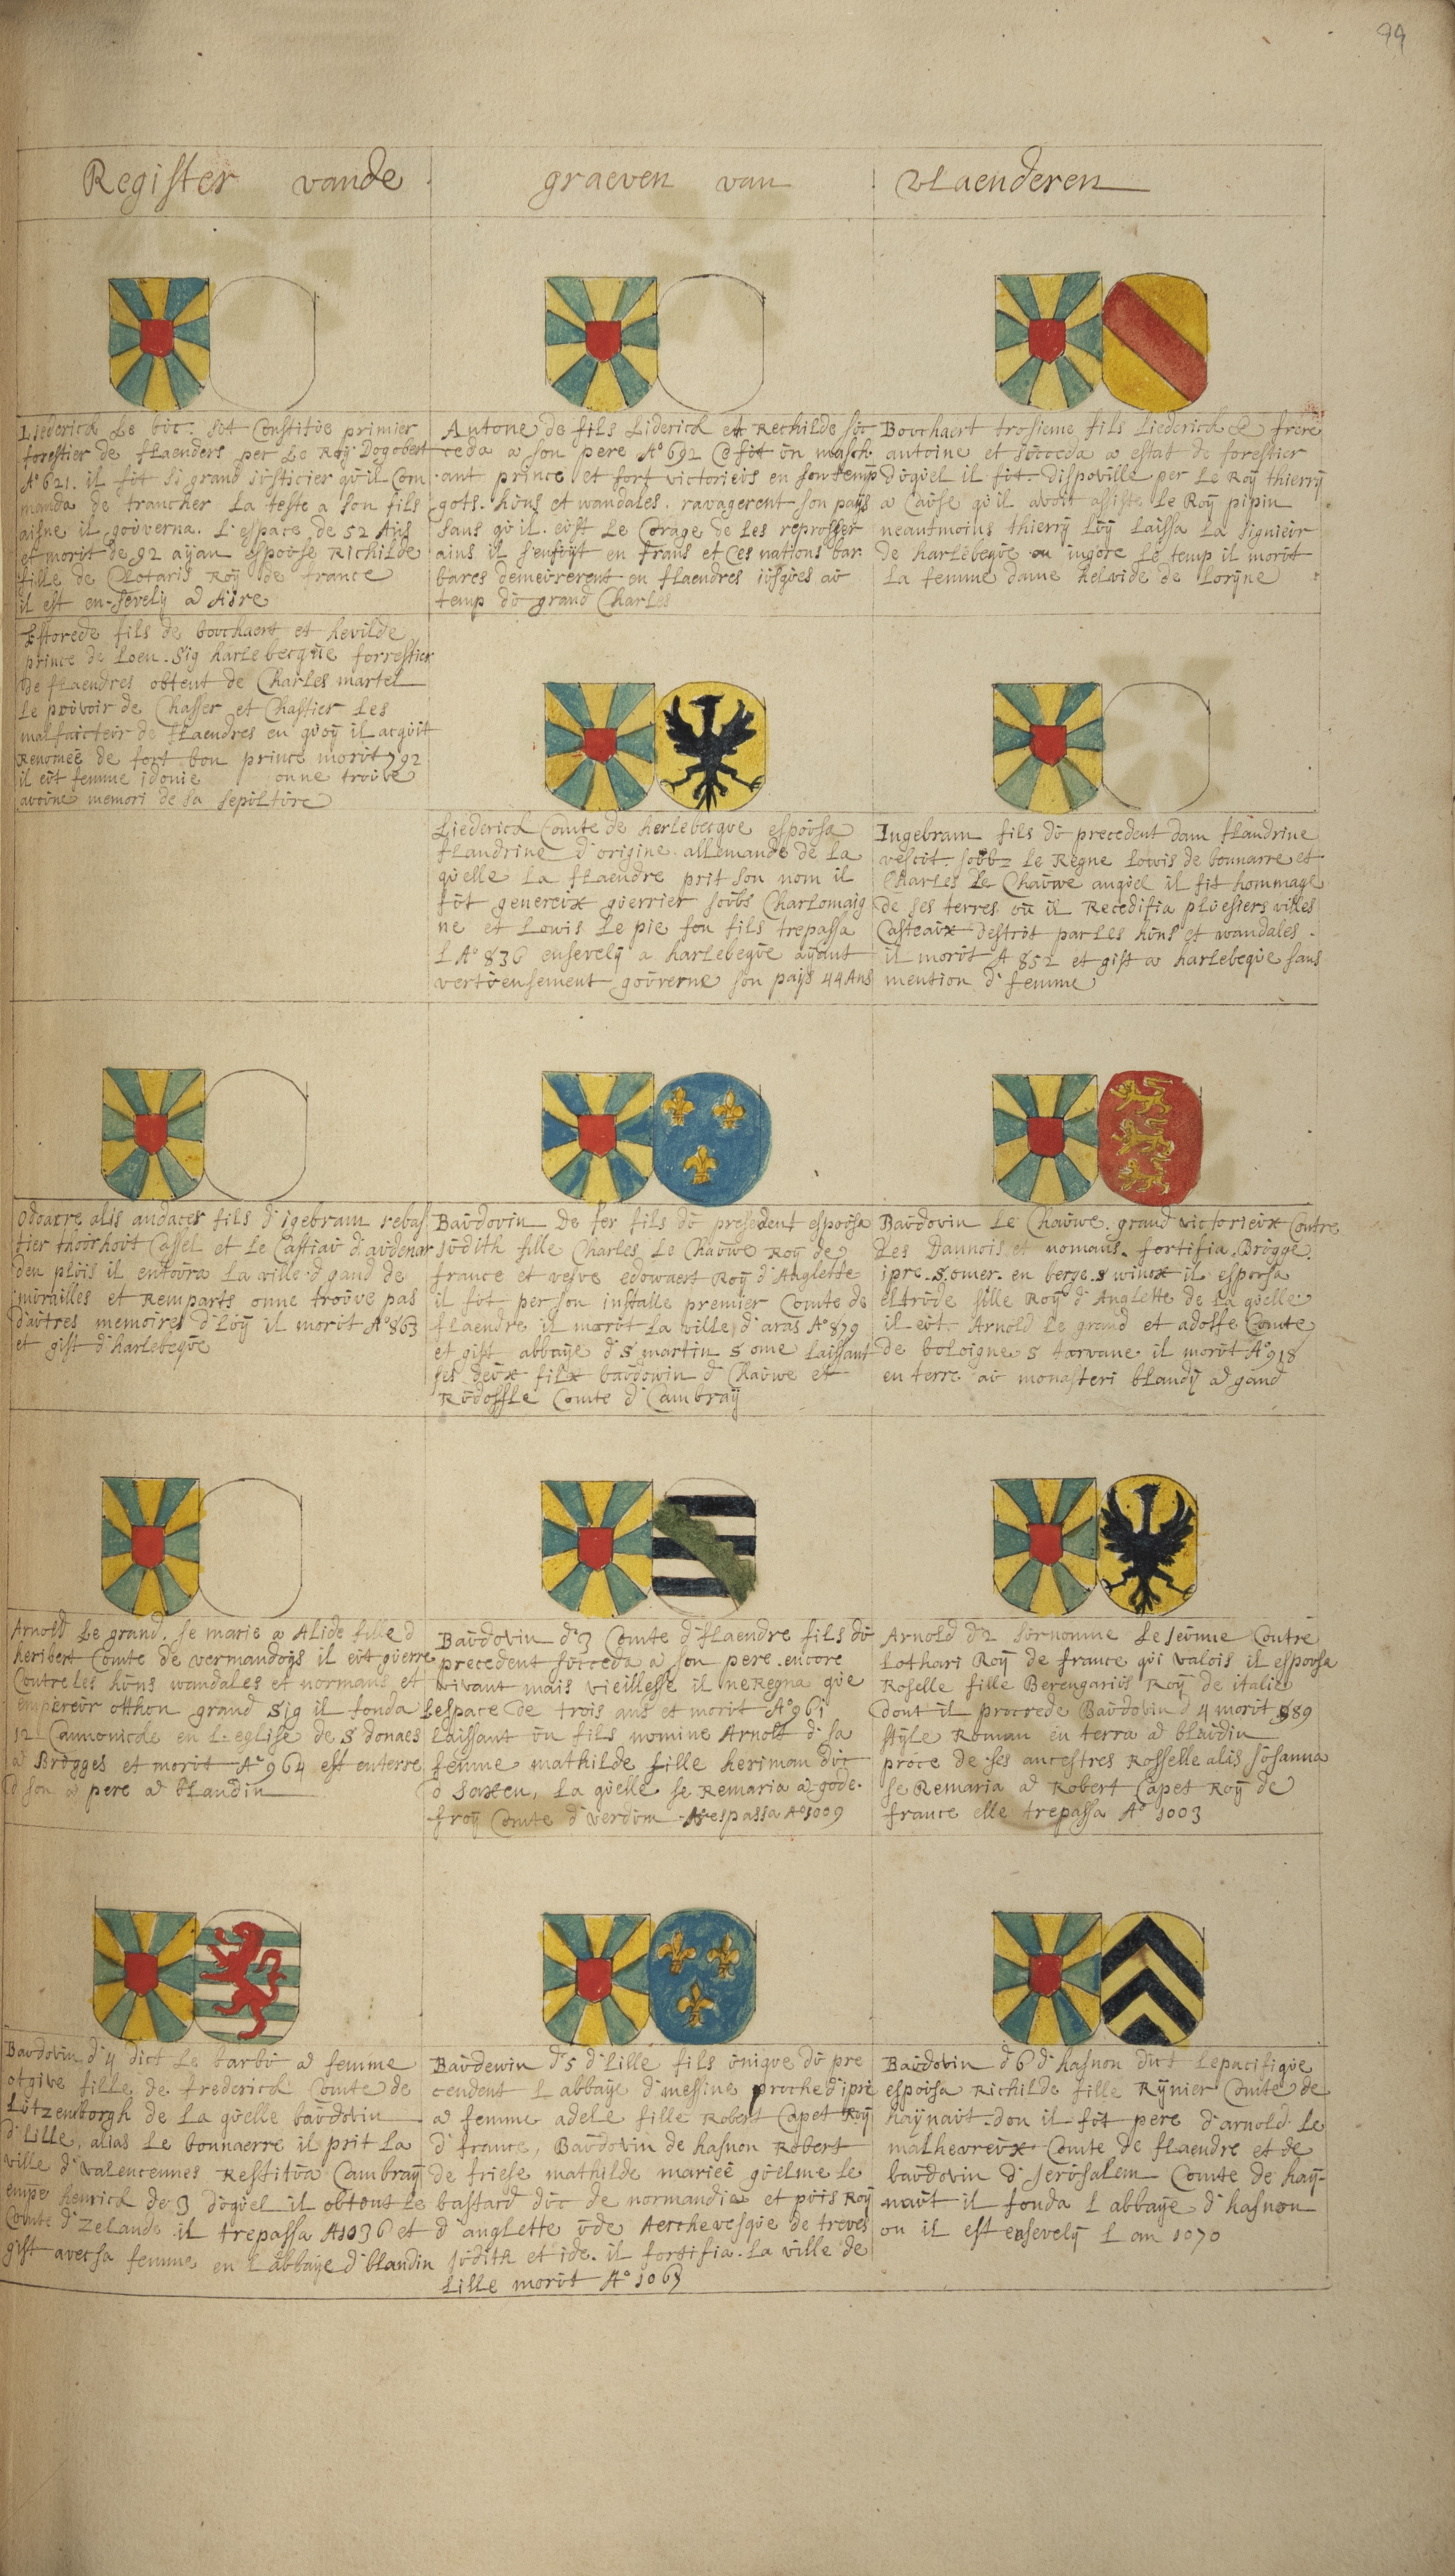 99
Register vande graeven van vlaenderen
Liederick Le buc. fut Constitue primier
forestier de flaenders per Le Roÿ Dogobert
A° 621. il fut si grand justicier qu'il Com
manda de trancher La teste a son fils
aisne il gouverna. L'espace de 52 Ans
et morut de 92 aÿan espouse Richilde
fille de Clotaris Roÿ de france
il est en-sevelÿ a Aire
Antone de fils Liderick et Rechilde suc
ceda a son pere A° 692 fut un masch
ant prince et fort victorieus en son temp
gots. huns et wandales. ravagerent son paÿs
sans qu'il. eust Le Corage de Les reposser
ains il s'enfuÿt en frans et Ces nations bar
bares demeurerent en flaendres jusques au
temp du grand Charles
Bouchaert trosieme fils Liederick & frere
antoine et succeda a estat de forestier
duquel il fut. dispouille per Le Roÿ thierrÿ
a Cause qu'il avoit asiste Le Roÿ pipin
neautmoins thierrÿ Luÿ Laissa La signieur
de harlebeque ou ingore Le temp il morut
La femme dame helwide de Lorÿne
Estorede fils de bouchaert et hevilde
prince de Loen. Sig harlebecque forrestier
De flaendres obtent de Charles martel
Le pouvoir de Chasser et Chastier Les
malfaicteur de flaendres en quoÿ il acquit
Renomeé de fort bon prince morut 792
il eut femme idonie onne trouve
aucune memori de sa sepulture
Liederick Comte de herlebecque espousa
flandrine d'origine allemande de La
quelle La flaendre prit son nom il
fut genereux guerrier soubs Charlomaig
ne et Lowis Le pie son fils trepassa
L A° 836 ensevelÿ a harlebeque aÿant
vertueusement gouverne son paÿs 44 Ans
Ingebram fils du precedent dam flandrine
vescut. soubz Le Regne Lowis de bonnarre et
Charles Le Chauwe auquel il fit hommage
de ses terres ou il Recedifia pluesiers villes
Casteaux destrut par Les huns et wandales.
il morut A 852 et gist a harlebeque sans
mention d'femme
Odoacre alis audacer fils d'igebram rebas
tier thoorhout Cassel et Le Castiau d'audenar
den pluis il entoura La ville d gand de
murailles et Remparts onne trouve pas
d'autres memoires d'Luÿ il morut A° 863
et gist d'harlebeque
Baudovin de fer fils du presedent espousa
Judith fille Charles Le Chauwe Roÿ de
france et vesve edowaert Roÿ d'Anglette
il fut per son installe premier Comte de
flaendre il morut La ville d'aras A° 879
et gist abbaÿe d'S martin S ome Laissant
ses deux filx baudowin d' Chauwe et
Rudoffle Comte d'Cambraÿ
Baudovin Le Chauwe. grand victorieux Contre
Les Dannois et nomans. fortifia Brugge.
ipre. S. omer. en berge. S winox il espousa
eltrude fille Roÿ d'Anglette de La quelle
il eut. Arnold Le grand et adolfe Comte
de boloigne S tarvane il morut A° 918
en terre au monasteri blandÿ a gand
Arnold Le grand. se marie a Alide fille d
heribert Comte de vermandoÿs il eut guerre
Contre Les huns wandales et normans et
empereur otthon grand Sig il fonda
12 Cannonicke en L'eglise de S donaes
a Brugges et morut A° 964 est enterre
d son a pere a blandin
Baudovin d'3 Comte d'flaendre fils du
precedent succeda a son pere encore
vivant mais vieillesse il ne Regna que
Lespace De trois ans et morut A° 961
Laissant un fils nomine Arnold d'sa
femme mathilde fille heriman duc
d saxen, La quelle se Remaria a gode.
froÿ Comte d'verdum trespassa A° 1009
Arnold d'2 surnomme Le Jeunne Contre
Lothari Roÿ de france qui valois il espousa
Roselle fille Berengarius Roÿ de italie
dont il procrede Baudovin d 4 morut 989
style Roman en terra a blaudin
proce de ses ancestres Rosselle alis susanna
se Remaria a Robert Capet Roÿ de
france elle trepassa A° 1003
Baudovin d'4 dict Le barbu a femme
otgive fille de frederick Comte de
Lutzenborgh de La quelle baudovin
d'Lille, alias Le bonnaerre il prit La
ville d'valencennes Restitua Cambraÿ
empe henrick de 3 duquel il obtent Le
Comte d'Zelande il trepassa A 1036 et
gist avec sa femme en Labbaÿe d'blandin
Baudewin d'5 d'Lille fils unique du pre
cendent L abbaÿe d'messine proche d'ipre
a femme adele fille Robert Capet Roÿ
d'france, Baudovin de hasnon Robert
de friese mathilde marieé guelme Le
bastard duc de normandie et puis Roÿ
d'anglette ude Aerchevesque de treves
Judith et ide. il fortifia. La ville de
Lille morut A° 1067
Baudovin d'6 d'hasnon dict Lepacifique
espousa Richilde fille Rÿnier Comte de
haÿnaut. don il fut pere d'arnold Le
malheureux Comte de flaendre et de
baudovin d'Jerusalem Comte de haÿ-
naut il fonda L abbaÿe d'hasnon
ou il est ensevelÿ L an 1070